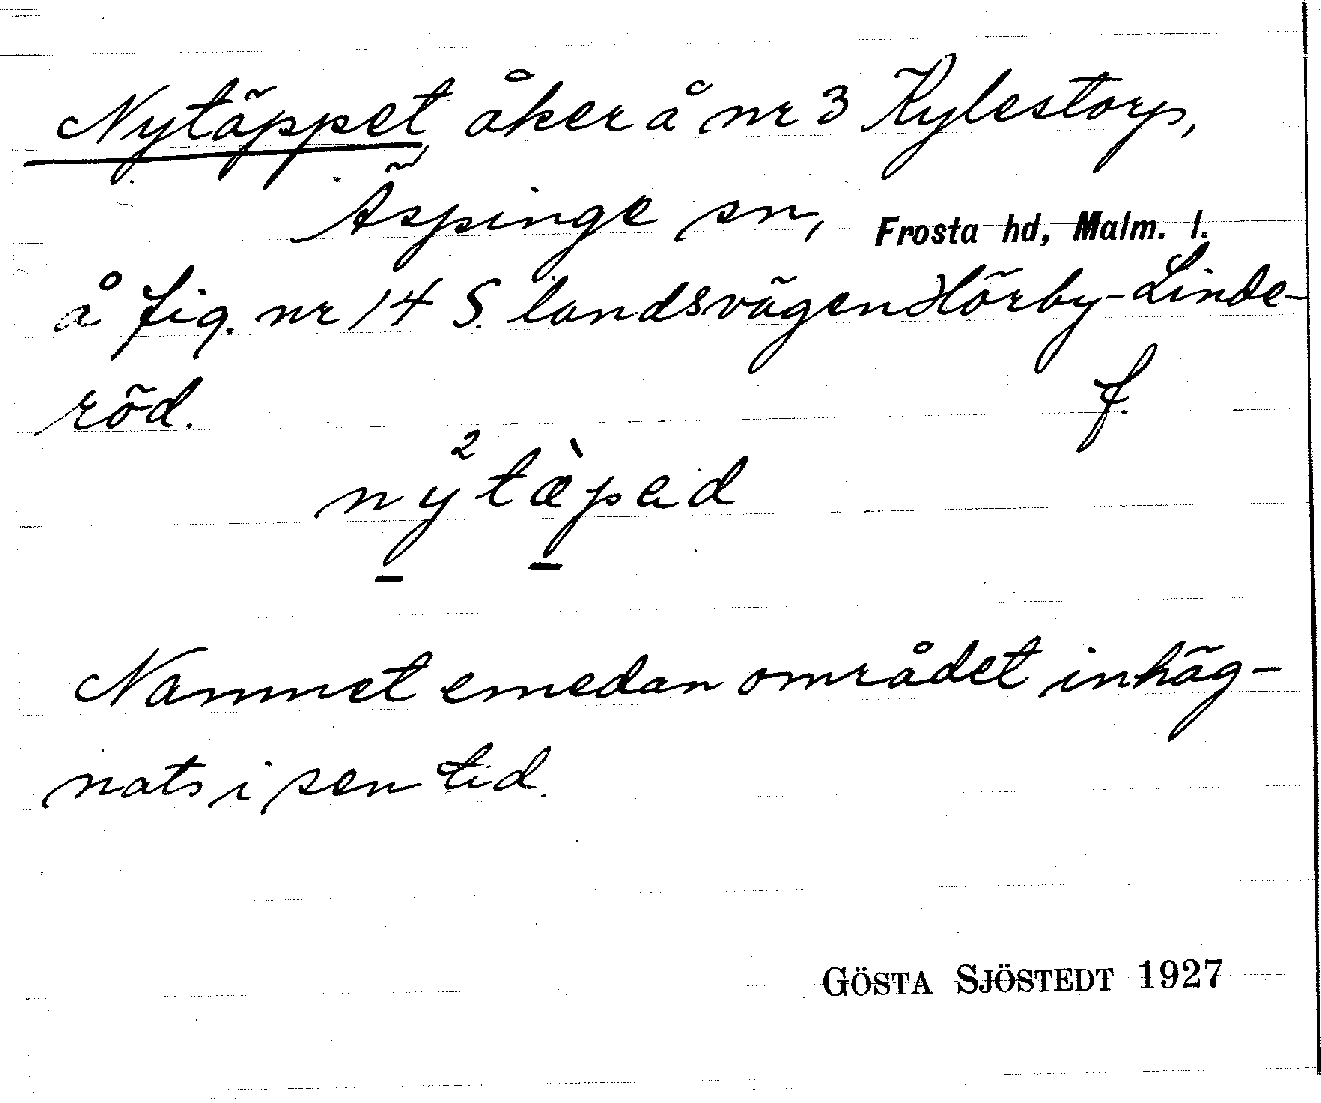 Nytäppet, åker å nr 3 Kylestorp,
Äspinge sn, Frosta hd, Malm. l.
å fig. nr 14 S. landsvägen Hörby-Linde-
röd. f.
nỳ²tæ̀pad
Namnet emedan området inhäg-
nats i sen tid.
GÖSTA SJÖSTEDT 1927